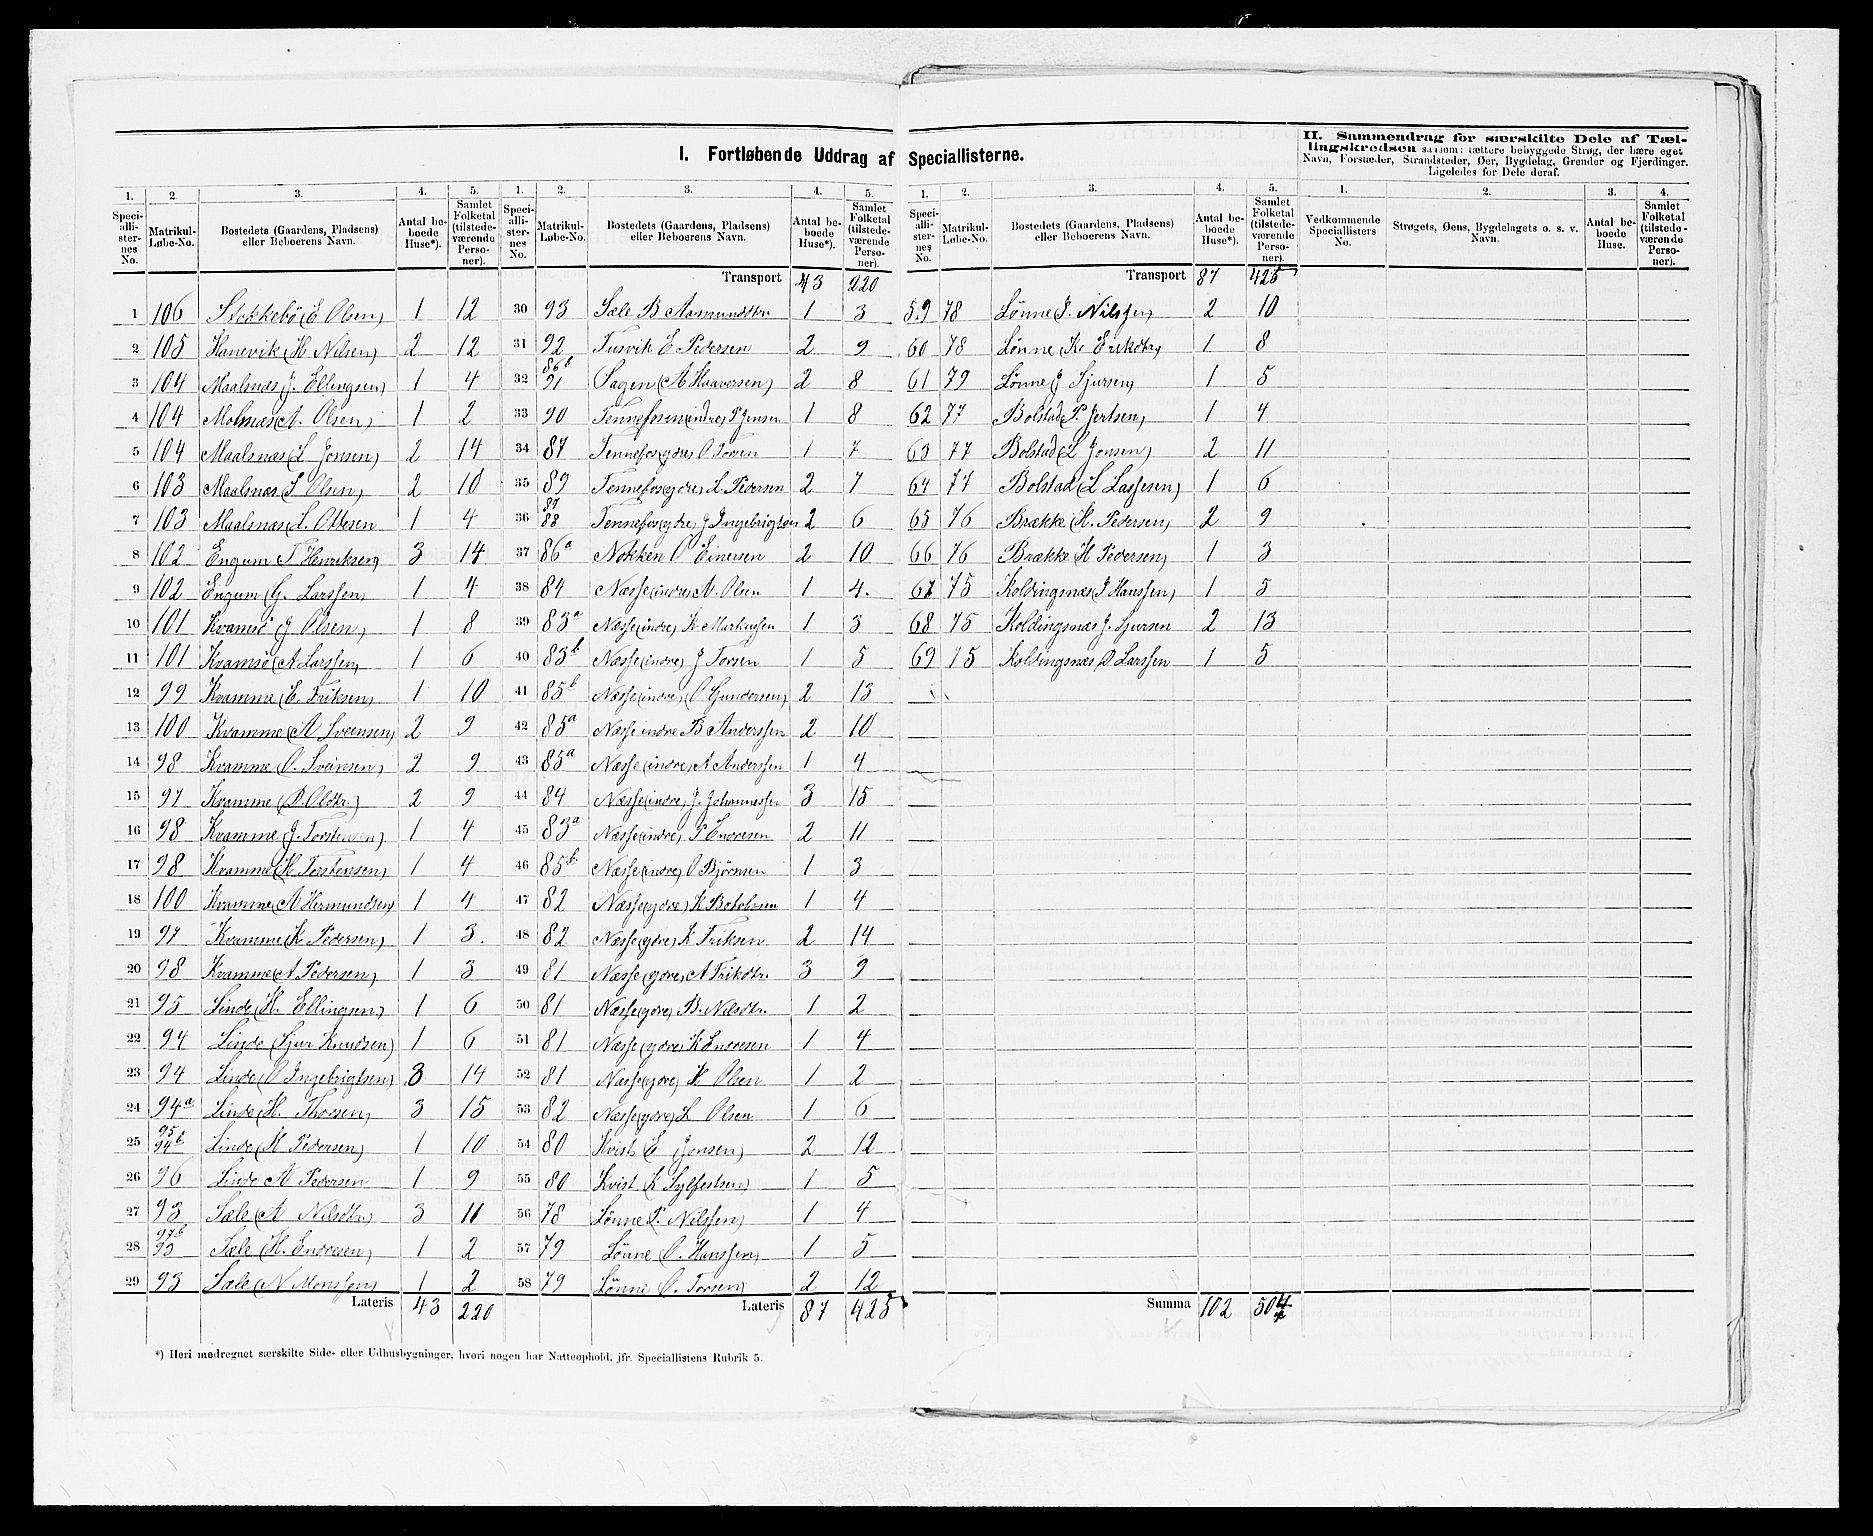 I. Fortløbende Uddrag af Speciallisterne.
II. Sammendrag for særskilte Dele af Tællingskredsen saasom: tættere bebyggede Strøg, der bære eget Navn, Forstæder, Strandsteder, Øer, Bygdelag, Grender og Fjerdinger. Ligeledes for Dele deraf.
1. 2. 3. 4. 5. 1. 2. 3. 4. 5.
Speciallisternes No. Matrikul-Løbe-No. Bostedets (Gaardens, Pladsens) eller Beboerens Navn. Antal beboede Huse*). Samlet Folketal (tilstedeværende Personer). Speciallisternes No. Matrikul-Løbe-No. Bostedets (Gaardens, Pladsens) eller Beboerens Navn. Antal beboede Huse*). Samlet Folketal (tilstedeværende Personer).
1 106 Stokkebö (E Olsen) 1 12
2 105 Hanevik (H Nilsen) 2 12
3 104 Maalsnæs (J. Ellingsen) 1 4
4 104 Molnæs (A. Olsen) 1 2
5 104 Maalsnæs (L Jonsen) 2 14
6 103 Maalsnæs (S Olsen) 2 10
7 103 Maalsnæs (L. Ottesen 1 4
8 102 Engum T Henriksen) 3 14
9 102 Engum (G. Larssen) 1 4
10 101 Kvamsö (J Olsen) 1 8
11 101 Kvamsö (A Larssen) 1 6
12 99 Kvamme (E. Eriksen) 1 10
13 100 Kvamme (A Sveensen) 2 9
14 98 Kvamme (O. Sveinsen) 2 9
15 97 Kvamme (D. Oldtr.) 2 9
16 98 Kvamme (J. Torstensen) 1 4
17 98 Kvamme (H Torstensen) 1 4
18 100 Kvamme (A Hermundsen) 1 4
19 97 Kvamme (K Pedersen) 1 3.
20 98 Kvamme (A Pedersen) 1 3
21 95 Linde (H. Ellingsen) 1 6
22 94 Linde (Sjur Knudsen) 1 6
23 94 Linde (O Ingebrigtsen) 3 14
24 94a Linde (H. Thorsen) 3 15
25 95 94b Linde (H Pedersen) 1 10
26 96 Linde A Pedersen 1 9
27 93 Sæle (A Nilsdtr.) 3 11
28 97b 93 Sæle (H. Endresen) 1 2
29 93 Sæle (N Monssen) 1 2
Lateris 43 220
Transport 43 220
30 93 Sæle B Aasmundtr. 1 3
31 92 Tusvik E Pedersen 2 9
32 86b 91 Sagen (A Haaversen) 2 8
33 90 Tennefosen (indre) P Jensen 1 8
34 87 Tennefos (ydre) O Torsen 1 7
35 89 Tennefos (ydre) L. Pedersen 2 7
36 87 88 Tennefos (ydre) J Ingebrigtsen 2 6
37 86a Nokken O Einersen 2 10
38 84 Næsse (indre) A. Olsen 1 4.
39 83a Næsse (indre) K Markussen 1 3
40 83b Næsse (indre) J Torsen 1 5
41 85b Næsse (indre) (O Gundersen) 2 13
42 85a Næsse indre B Anderssen 2 10
43 85a Næsse (indre) A Anderssen 1 4
44 84 Næsse (indre) J. Johannessen 3 15
45 83a Næsse (indre) P Endresen 2 11
46 85b. Næsse (indre) O Björnsen 1 3
47 82 Næsse (ydre) K Botolvsen 1 4
48 82 Næsse (ydre) K Eriksen 2 14
49 81 Næsse (ydre) A Erikdtr. 3 9
50 81 Næsse (ydre) B. Nilsdtr. 1 2
51 81 Næsse (ydre) K Endresen 1 4
52 81 Næsse (ydre) K Olsen 1 2
53 82 Næsse (ydre) L Olsen 1 6
54 80 Kvist E Jonsen) 2 12
55 80 Kvist (K Sylfestsen) 1 5
56 78 Lønne (P. Nilssen) 1 4
57 79 Lønne (O. Hanssen) 1 5
58 79 Lønne (O. Torsen) 2 12
Lateris 87 425
1. 2. 3. 4. 5. 1. 2. 3. 4.
Speciallisternes No. Matrikul-Løbe-No. Bostedets (Gaardens, Pladsens) eller Beboerens Navn. Antal beboede Huse*). Samlet Folketal (tilstedeværende Personer). Vedkommende Speciallisters No. Strøgets, Øens, Bygdelagets o. s. v. Navn. Antal beboede Huse. Samlet Folketal (tilstedeværende Personer).
Transport 87 425
59 78 Lønne (J. Nilssen) 2 10
60 78 Lønne (K. Erikdtr) 1 8
61 79 Lønne (J Sjursen) 1 5
62 77 Bolstad (P. Jertsen) 1 4
63 77 Bolstad (L Jonsen) 2 11
64 77 Bolstad (L Lassesen) 1 6
65 76 Brække (H. Pedersen) 2 9
66 76 Brække (H Pedersen) 1 3
67 75 Koldingsnæs (J Hanssen) 1 5
68 75 Koldingsnæs J. Sjursen 2 13
69 75 Koldingsnæs D Larssen 1 5
Summa 102 504
*) Heri medregnet særskilte Side- eller Udhusbygninger, hvori nogen har Natteophold, jfr. Speciallistens Rubrik 5.